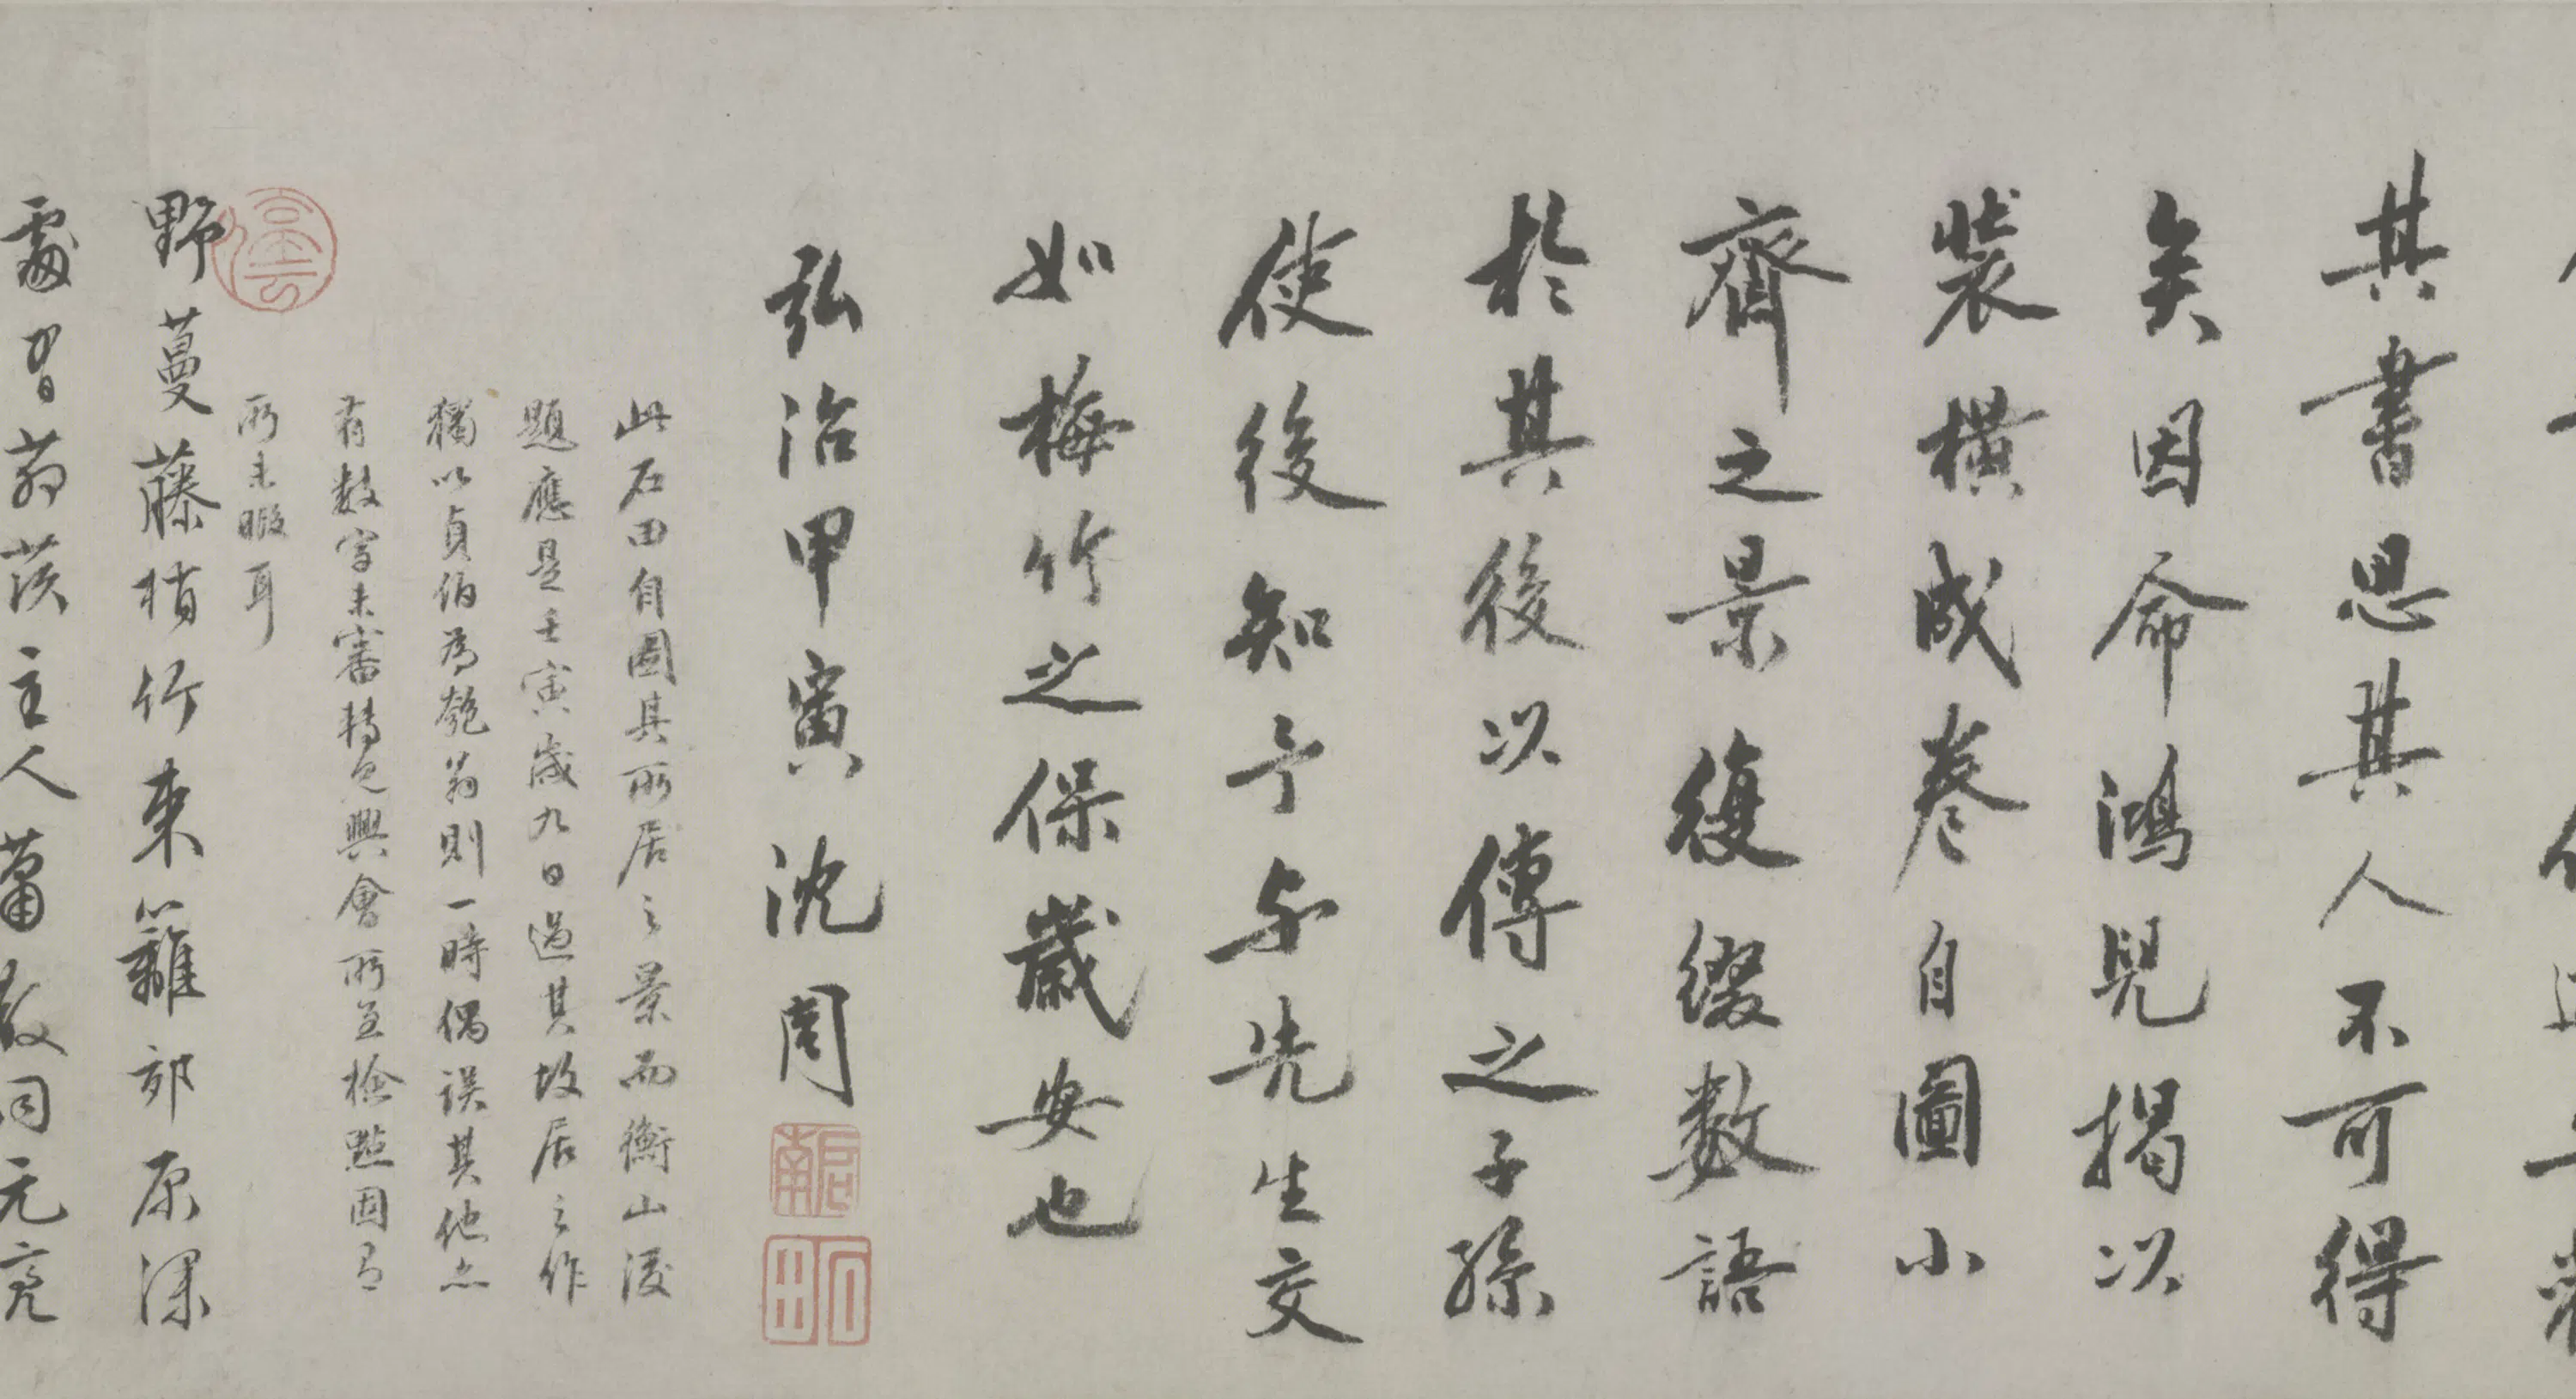 其書思其人不可得
矣因命鴻兒揭以
裝橫成卷自圖小
齋之景復綴數語
於其後以傳之子孫
使後知予与先生交
如梅竹之保歲安也
弘治甲寅沈周
啟南
石田
此石田自圖其所居之景而衡山後
題應是壬寅歲九日過其故居之作
獨以貞伯為匏翁則一時偶誤其他亦
有數字未審特乞興會所至檢點固有
所未暇耳
野蔓藤梢竹束籬郊原深
處有茆茨主人蕭散同元亮